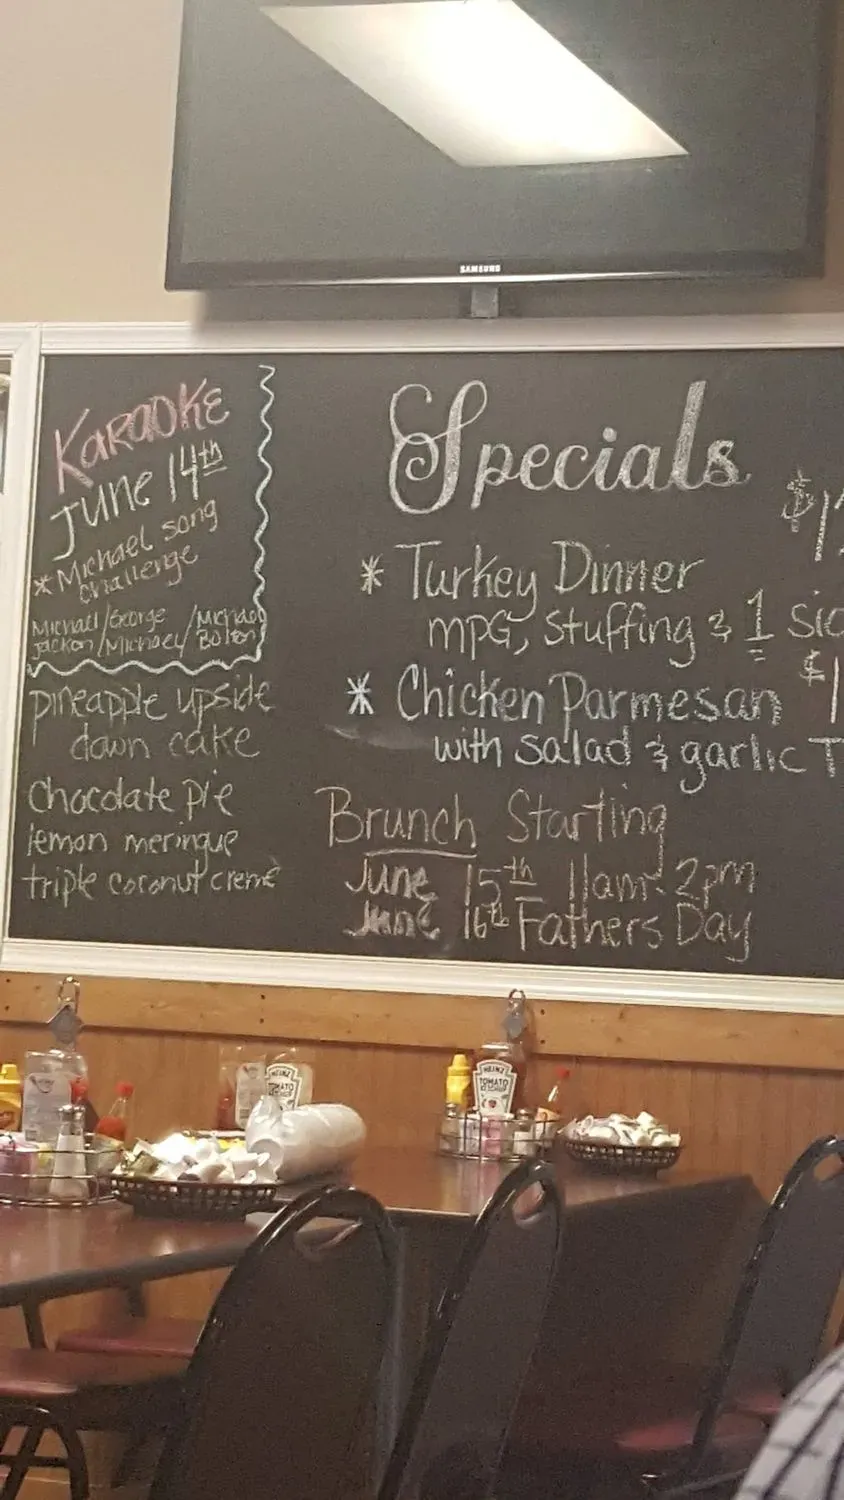 SAMSUNG
KARAOKE
JUNE 14th
* Michael song
challenge
Michall/George/Michael
Jackon/Michael/Bolton
pineapple upside
down cake
Chocolate Pie
lemon meringue
triple coconut cremè
Specials
$1
* Turkey Dinner
mPG, Stuffing & 1 Sid
* Chicken Parmesan $1
with Salad & garlic T
Brunch Starting
June 15th 11am-2pm
June 16th Fathers Day
HEINZ
TOMATO
KETCHUP
HEINZ
TOMATO
KETCHUP